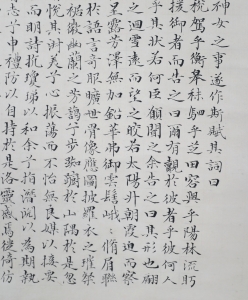 神女之事遂作斯賦其詞曰
稅駕乎蘅皋秣駟乎芝田容與乎陽林流眄
援御者而告之曰爾有覿於彼者乎彼何人
乎其狀若何臣願聞之余告之曰其形也翩
之迴雪遠而望之皎若太陽升朝霞迫而察
呈露芳澤無加鉛華弗御雲髻峨〻脩眉聯
於語言奇服曠世骨像應圖披羅衣之璀粲
裾微幽蘭之芳藹兮步踟躕於山隅於是忽
悅其淑美兮心振蕩而不怡無良媒以接歡
而明詩抗瓊珶以和余兮指潛淵以為期執
志兮申禮防以自持於是洛靈感焉徙倚彷